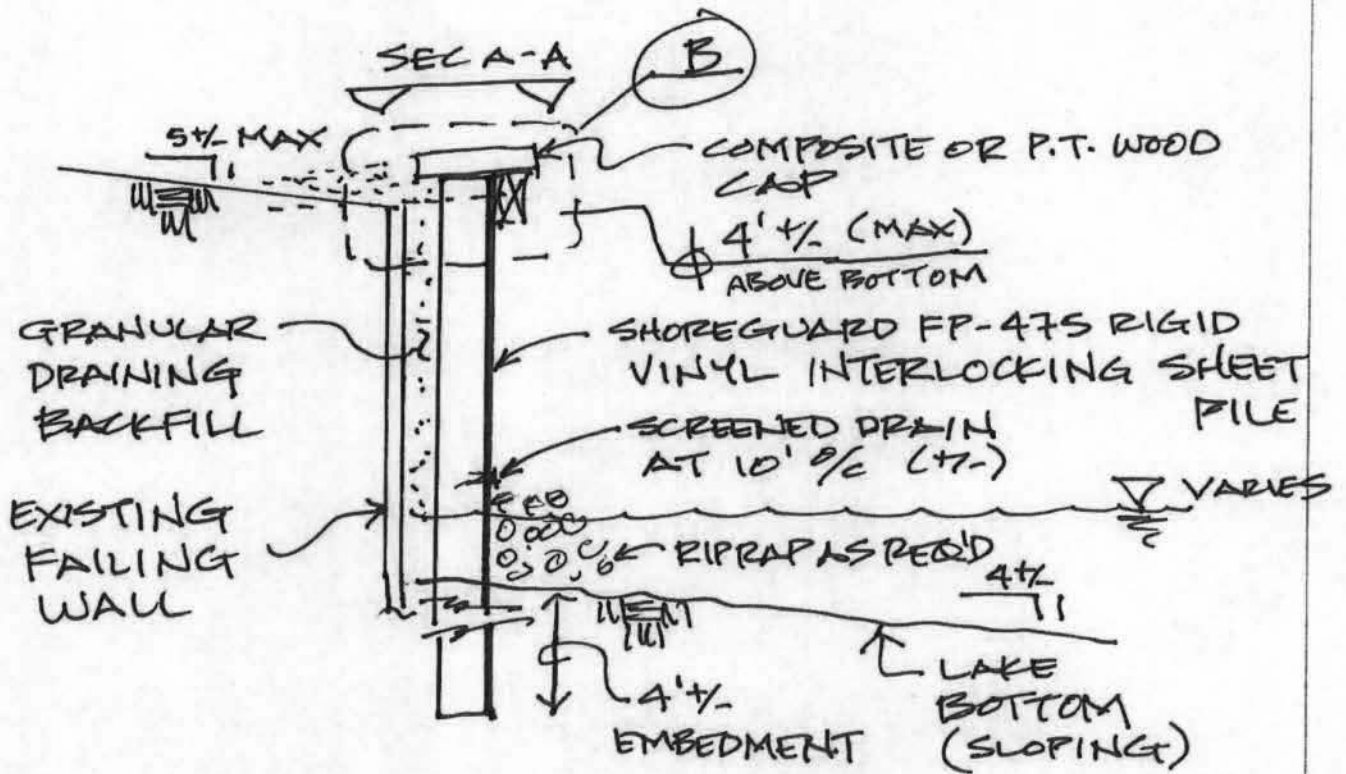 SEC A-A
B
5+/- MAX
1
COMPOSITE OR P.T. WOOD
CAP
4' +/- (MAX)
ABOVE BOTTOM
GRANULAR
DRAINING
BACKFILL
SHOREGUARD FP-475 RIGID
VINYL INTERLOCKING SHEET
PILE
SCREENED DRAIN
AT 10' o/c (+/-)
VARIES
EXISTING
FAILING
WALL
RIPRAP AS REQ'D
4+/-
1
LAKE
BOTTOM
(SLOPING)
4' +/-
EMBEDMENT